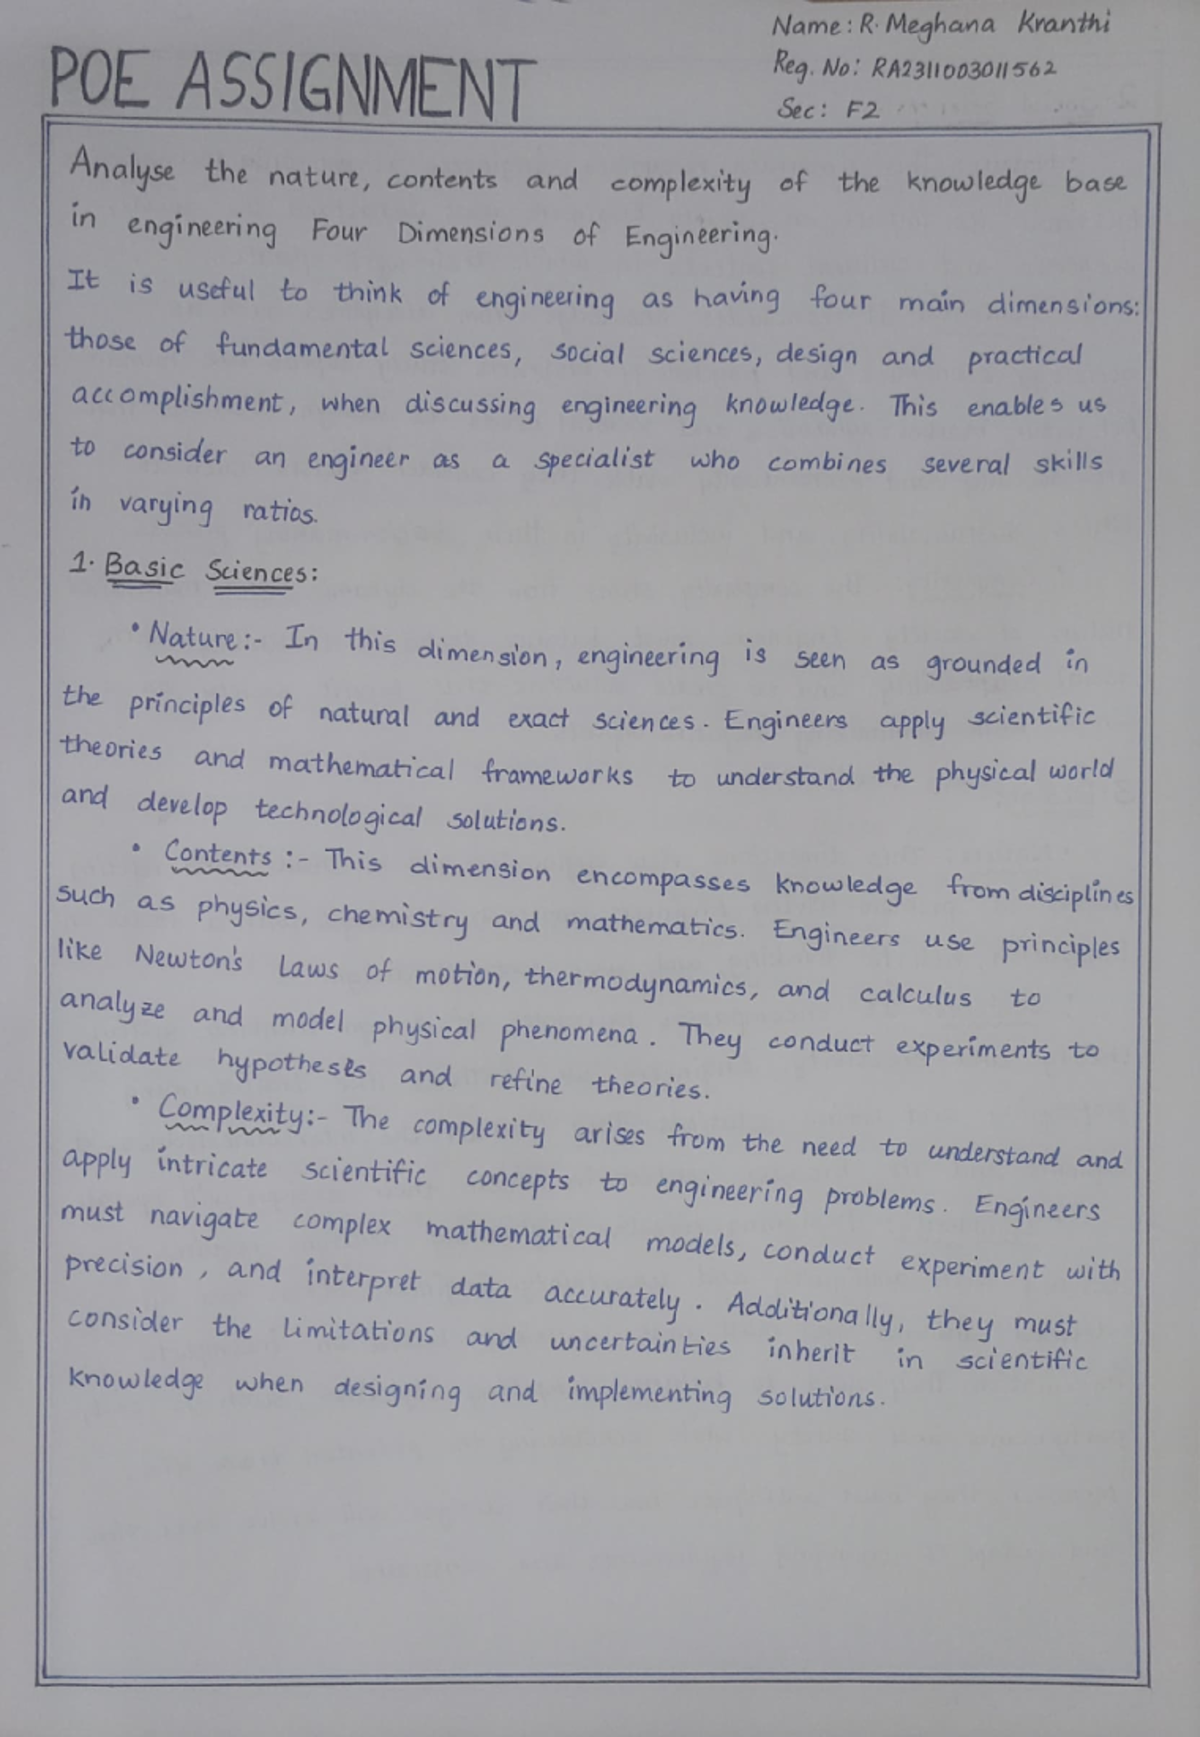 Name: R. Meghana Kranthi
POE ASSIGNMENT
Reg. No: RA2311003011562
Sec: F2
Analyse the nature, contents and complexity of the knowledge base
in engineering Four Dimensions of Engineering.
It is useful to think of engineering as having four main dimensions:
those of fundamental sciences, social sciences, design and practical
accomplishment, when discussing engineering knowledge. This enables us
to consider an engineer as a specialist who combines several skills
in varying ratios.
1. Basic Sciences:
• Nature:- In this dimension, engineering is seen as grounded in
the principles of natural and exact sciences. Engineers apply scientific
theories and mathematical frameworks to understand the physical world
and develop technological solutions.
• Contents :- This dimension encompasses knowledge from disciplines
such as physics, chemistry and mathematics. Engineers use principles
like Newton's Laws of motion, thermodynamics, and calculus to
analyze and model physical phenomena. They conduct experiments to
validate hypotheses and refine theories.
• Complexity:- The complexity arises from the need to understand and
apply intricate scientific concepts to engineering problems. Engineers
must navigate complex mathematical models, conduct experiment with
precision, and interpret data accurately. Additionally, they must
consider the limitations and uncertainties inherit in scientific
knowledge when designing and implementing solutions.